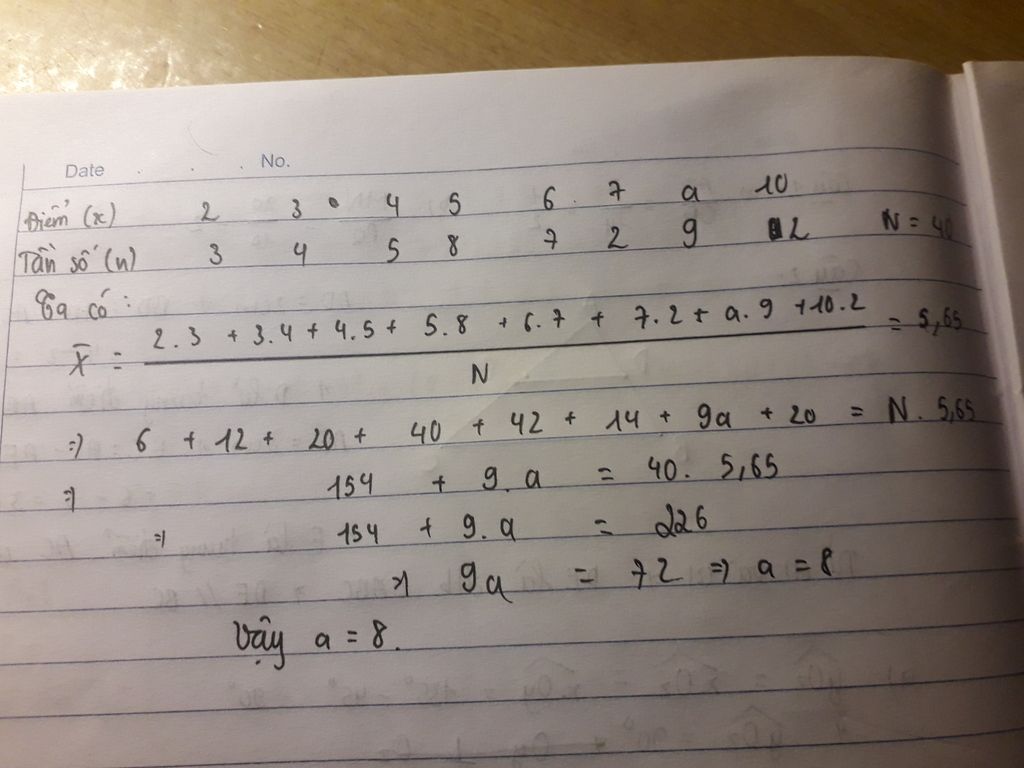 Date . . . No.
Điểm (x) 2 3 4 5 6 7 a 10
Tần số (n) 3 4 5 8 7 2 9 2 N = 40
Ta có:
X̄ = 2.3 + 3.4 + 4.5 + 5.8 + 6.7 + 7.2 + a.9 + 10.2 = 5,65
N
=) 6 + 12 + 20 + 40 + 42 + 14 + 9a + 20 = N. 5,65
=) 154 + 9.a = 40. 5,65
=) 154 + 9.a = 226
=) 9a = 72 =) a = 8
Vậy a = 8.